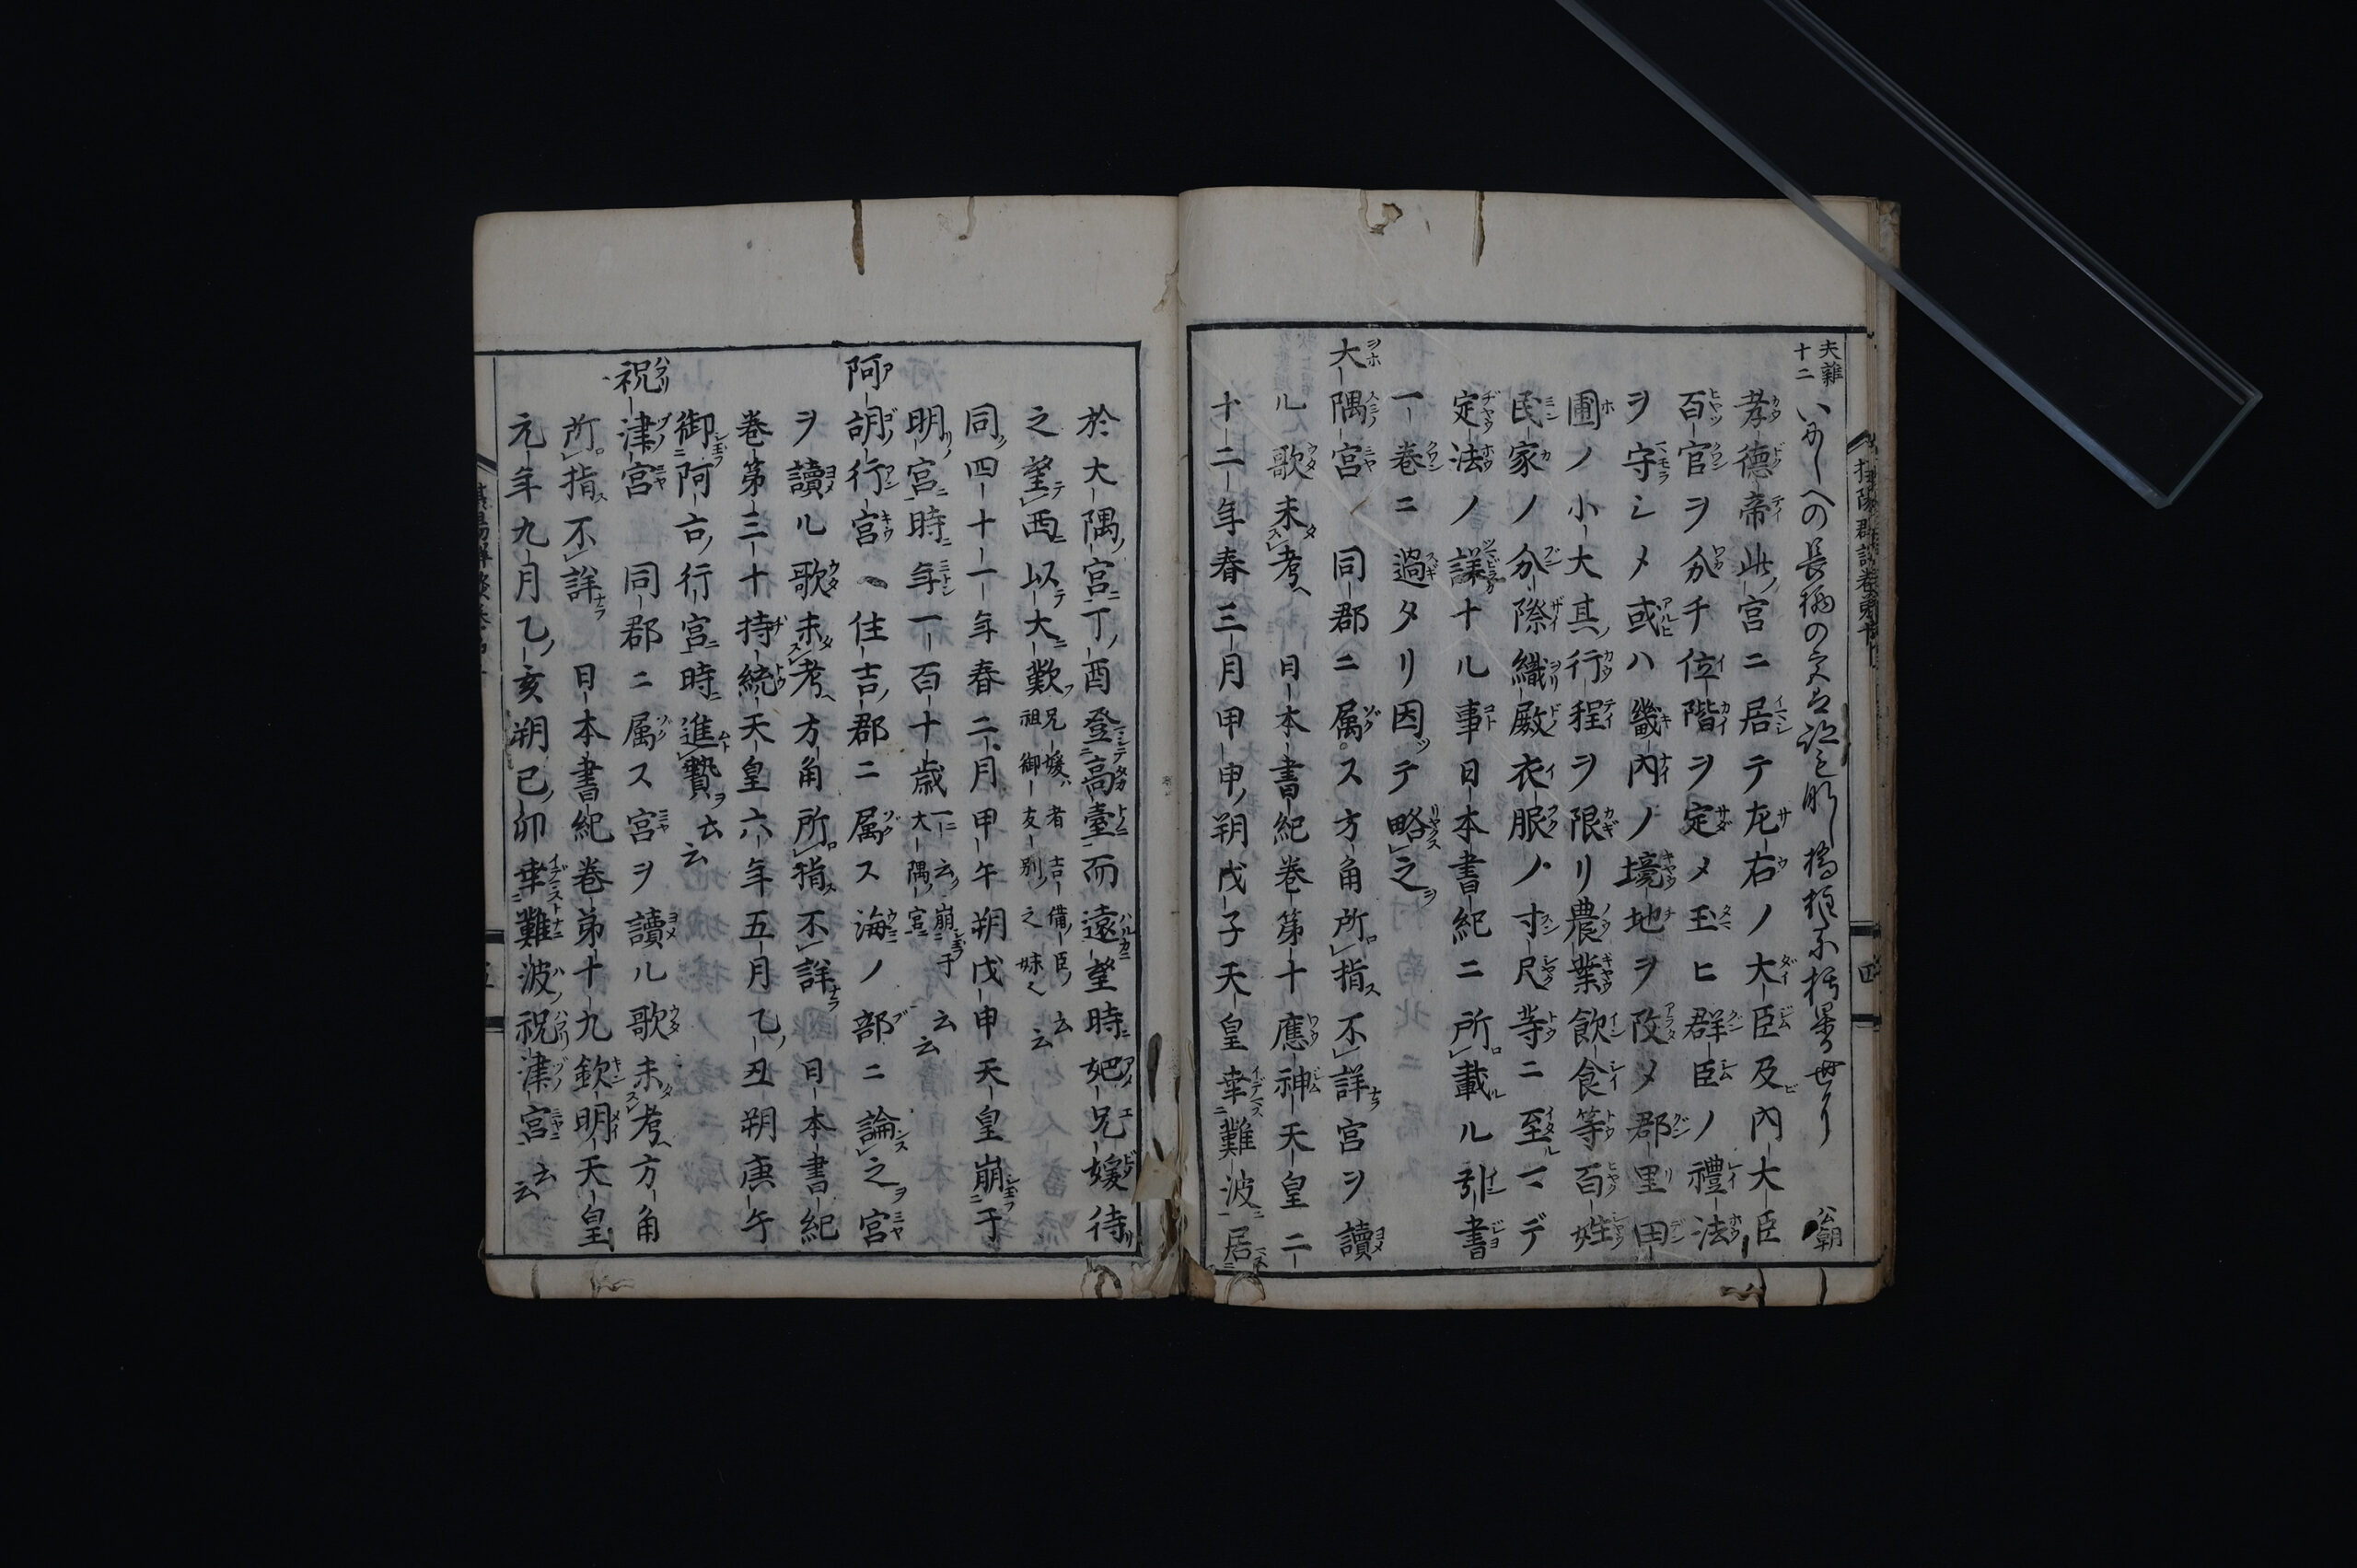 夫雜
十二
いにしへの長柄の
公朝
孝德帝此ノ宮ニ居テ左右ノ大臣及內大臣
百官ヲ分チ位階ヲ定メ玉ヒ群臣ノ禮法
ヲ守シメ或ハ畿內ノ境地ヲ改メ郡里田
圃ノ小大其行程ヲ限リ農業飲食等百姓
民家ノ分際織殿衣服ノ寸尺等ニ至マデ
定法ノ詳ナル事日本書紀ニ所載ル引書
一卷ニ過タリ因テ略之
大隅宮 同郡ニ属ス方角所指不詳宮ヲ讀
ル歌未考 日本書紀卷第十應神天皇二
十二年春三月甲申朔戊子天皇幸難波居
於大隅宮丁酉登高臺而遠望時妃兄媛待
之望西以大歎兄媛者吉備臣祖御友別之妹也云云
同四十一年春二月甲午朔戊申天皇崩于
明宮時年一百十歳一云崩于大隅宮云云
阿胡行宮 住吉郡ニ属ス海ノ部ニ論之宮
ヲ讀ル歌未考方角所指不詳 日本書紀
卷第三十持統天皇六年五月乙丑朔庚午
御阿古行宮時進贄云云
祝津宮 同郡ニ属ス宮ヲ讀ル歌未考方角
所指不詳 日本書紀卷第十九欽明天皇
元年九月乙亥朔己卯幸難波祝津宮云云